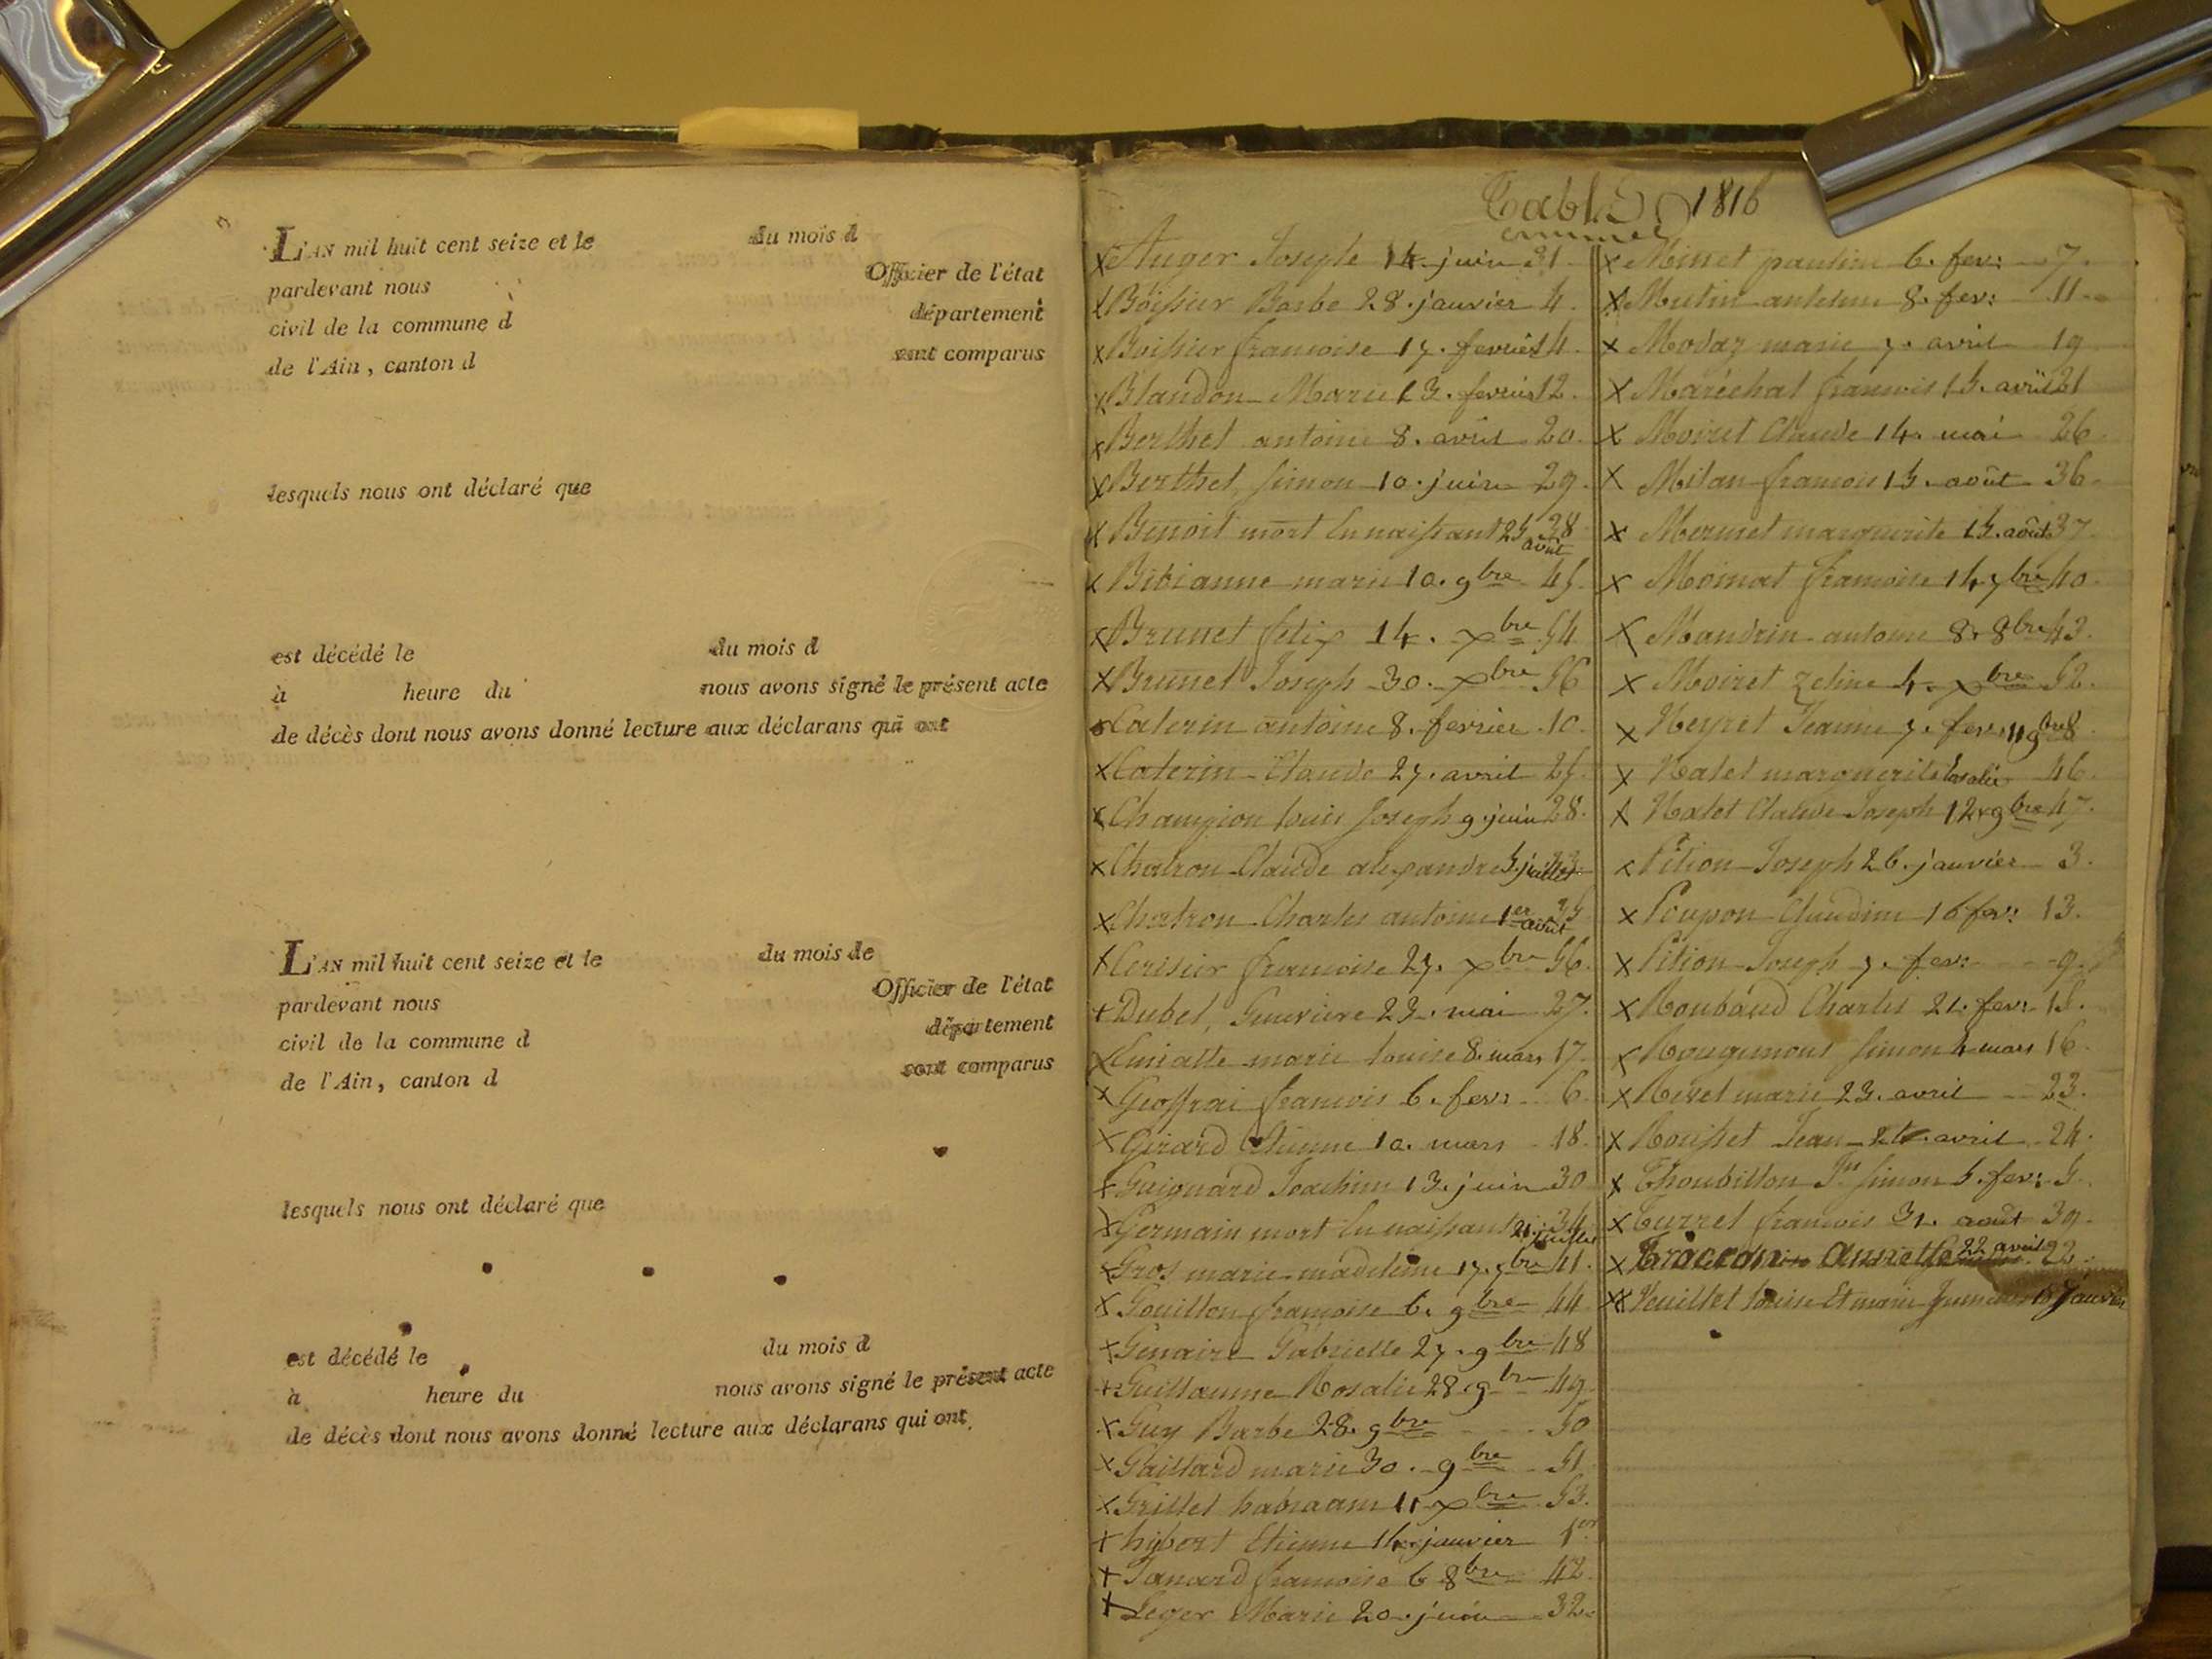 L'AN mil huit cent seize et le du mois d
pardevant nous Officier de l'état
civil de la commune d département
de l'Ain, canton d sont comparus
lesquels nous ont déclaré que
est décédé le du mois d
à heure du nous avons signé le présent acte
de décès dont nous avons donné lecture aux déclarans qui ont
L'AN mil huit cent seize et le du mois de
pardevant nous Officier de l'état
civil de la commune d département
de l'Ain, canton d sont comparus
lesquels nous ont déclaré que
est décédé le du mois d
à heure du nous avons signé le présent acte
de décès dont nous avons donné lecture aux déclarans qui ont
Table 1816
x Auger Joseph 14. juin 31
x Boissier Barbe 28. janvier 4.
x Boissier francoise 17. fevrier 14.
x Blandon Marie 13. fevrier 12.
x Berthet antoine 8. avril 20.
x Berthet, simon 10. juin 29.
x Benoit mort en naissant 25 août 38
x Bibianne marie 10. 9bre 45.
x Brunet felix 14. xbre 54
x Brunet Joseph 30. xbre 56
Caterin antoine 8. fevrier 10.
x Caterin Claude 27. avril 25.
x Champion louis Joseph 9 juin 28.
x Chatron Claude alexandre 5. juillet 33.
x Chatron Charles antoine 1er août 35
x Cerisier francoise 27. xbre 56.
+ Dubel, 23. mai 27.
x marie louise 8. mars 17.
x Geoffrai francois 6. fevr: 6.
x Girard Etienne 10. mars 18.
+ Guignard Joachim 13. juin 30
x Germain mort en naissant 21. juillet 34
x Gros marie madeleine 17. 7bre 41.
x Gouillon francoise 6. 9bre 44
+ Genaire Gabrielle 27. 9bre 48
+ Guillaume Rosalie 28. 9bre 49
x Guy Barbe 28. 9bre 50
x Gaillard marie 30. 9bre 51
x Grillet habraam 11 xbre 53.
+ hibert Etienne 14. janvier 1er
+ Janard francoise 6 8bre 42.
+ Leger Marie 20. juin 32.
x Minet paulin 6. fevr: 7.
x Mutin antelme 8. fevr: 11.
x Modaz marie 7. avril 19
x Maréchal francois 15. avril 21
x Moiret Claude 14. mai 26.
x Milan francois 15. août 36.
x Mermet marguerite 15. août 37.
x Moinat francoise 14 7bre 40.
x Mandrin antoine 8. 8bre 43.
x Moiret Zeline 4. xbre 52.
x Neyret Jeanne 7. fevr. 11 9bre 8
x Natet marguerite Rosalie 46.
x Natet Claude Joseph 12. 9bre 47.
x Pition Joseph 26. janvier 3.
x Poupon Claudine 16 fevr: 13.
x Pition Joseph 7. fevr: 9.
x Roubaud Charles 21. fevr: 15.
x Rougemont simon 4 mars 16.
x Revel marie 23. avril 23.
x Rousset Jean 24. avril 24.
x Thoubillon Jn simon 5. fevr: 5.
x Turrel francois 31. août 39.
x Traccon Annette 22 avril 22.
xx Veuillet louise Et marie 18 Janvier